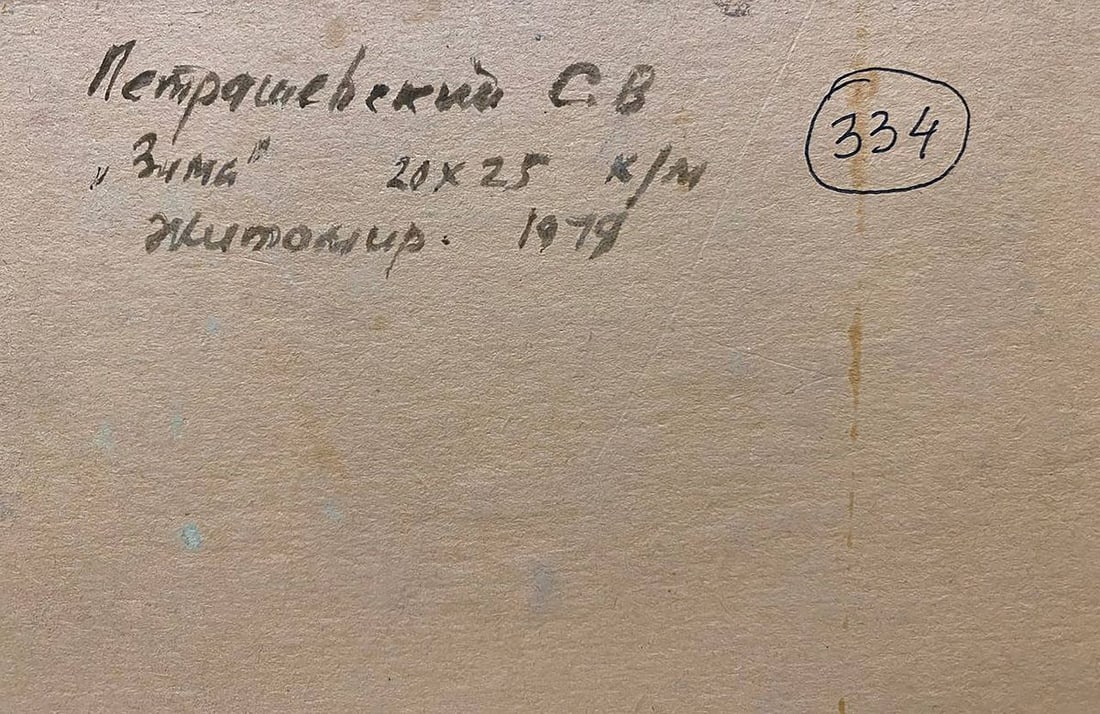 Петрашевский С. В
334
„Зима" 20х25 к/м
Житомир. 1979